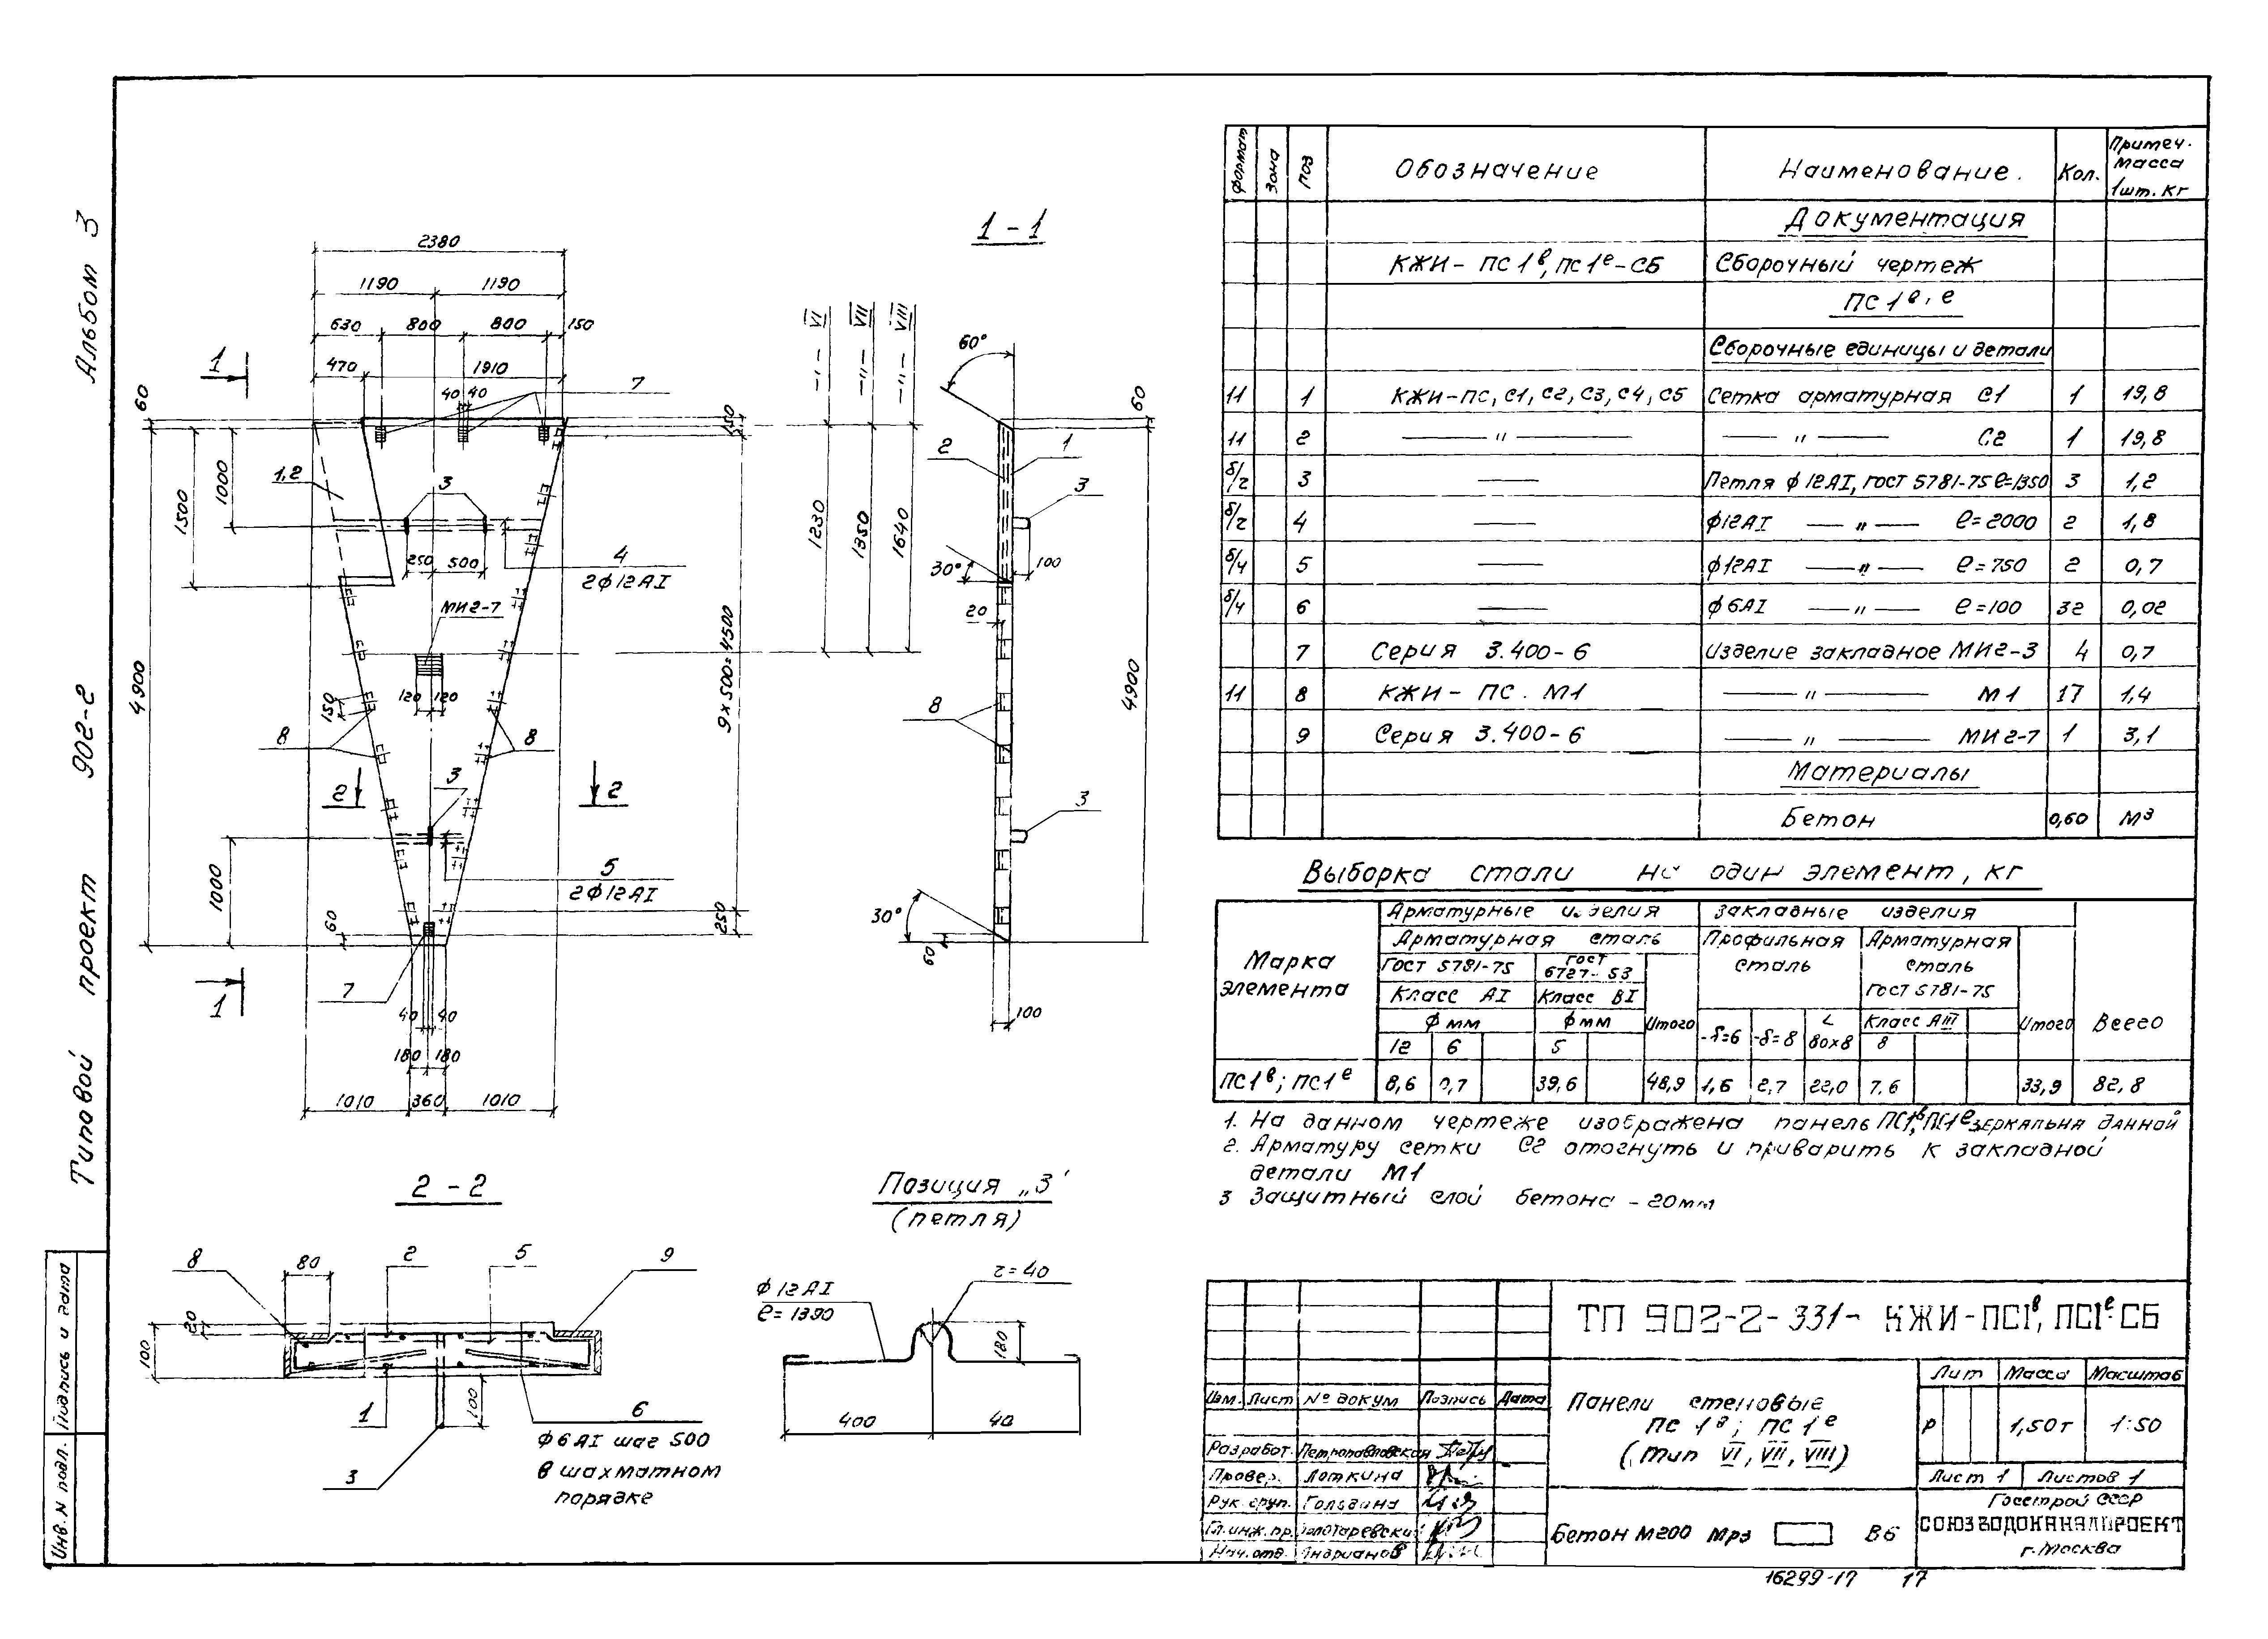 Альбом 3
902-2
Типовой проект
Инв. N подл. Подпись и дата
2380
1190 1190
630 800 800 150
470 1910
1
40 40
7
60
150
1,2
3
1000
1500
4900
250 500
4
2ф12АI
МИ2-7
120 120
150
8
8
9×500=4500
3
2 2
1000
5
2ф12АI
60
250
1
7
40 40
180 180
1010 360 1010
1-1
–"– VI
–"– VII
–"– VIII
60°
60
2
1
3
1230
1350
1640
30°
100
20
8
4900
3
30°
60
100
2-2
8 80 2 5 9
20
100
1
100
6
ф6АI шаг 500
в шахматном
порядке
3
Позиция „3"
(петля)
ф12АI
ℓ=1390
r=40
180
400 40
Формат Зона Поз Обозначение Наименование. Кол. Примеч. масса 1шт. кг
Документация
КЖИ-ПС1в, ПС1е-СБ Сборочный чертеж
ПС1в, е
Сборочные единицы и детали
11 1 КЖИ-ПС, С1, С2, С3, С4, С5 Сетка арматурная С1 1 19,8
11 2 –"– –"– С2 1 19,8
б/ч 3 — Петля ф12АI, ГОСТ 5781-75 ℓ=1350 3 1,2
б/ч 4 — ф12АI –"– ℓ=2000 2 1,8
б/ч 5 — ф12АI –"– ℓ=750 2 0,7
б/ч 6 — ф6АI –"– ℓ=100 32 0,02
7 Серия 3.400-6 Изделие закладное МИ2-3 4 0,7
11 8 КЖИ-ПС. М1 –"– М1 17 1,4
9 Серия 3.400-6 –"– МИ2-7 1 3,1
Материалы
Бетон 0,60 м3
Выборка стали на один элемент, кг
Марка элемента Арматурные изделия Закладные изделия Всего
Арматурная сталь Профильная сталь Арматурная сталь ГОСТ 5781-75
ГОСТ 5781-75 ГОСТ 6727-53 Итого
Класс АI Класс ВI
ф мм ф мм -δ=6 -δ=8 L 80×8 Класс АIII Итого
12 6 5 8
ПС1в; ПС1е 8,6 0,7 39,6 48,9 1,6 2,7 22,0 7,6 33,9 82,8
1. На данном чертеже изображена панель ПС1в, ПС1е зеркальна данной
2. Арматуру сетки С2 отогнуть и приварить к закладной
детали М1
3 Защитный слой бетона – 20мм
ТП 902-2-331- КЖИ-ПС1в, ПС1е-СБ
Изм. Лист № докум Подпись Дата
Разработ. Петропавловская
Провер. Лоткина
Рук. груп. Гольдина
Гл. инж. пр. Золотаревский
Нач. отд. Андрианов
Панели стеновые
ПС 1в; ПС 1е
(тип VI, VII, VIII)
Лит Масса Масштаб
Р 1,50т 1:50
Лист 1 Листов 1
Бетон М200 Мрз В6
Госстрой СССР
СОЮЗВОДОКАНАЛПРОЕКТ
г. Москва
16299-17 17